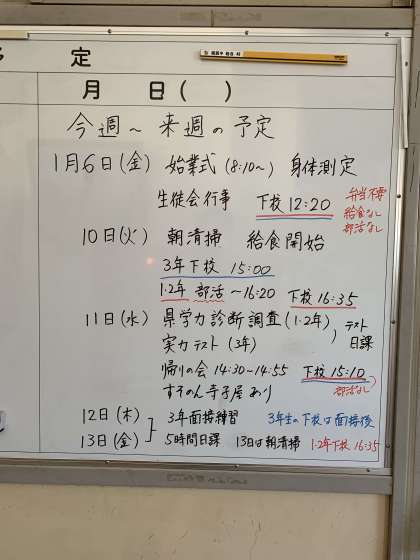 定
月 日( )
今週～来週の予定
1月6日(金) 始業式(8:10～) 身体測定
生徒会行事 下校12:20
弁当不要
給食なし
部活なし
10日(火) 朝清掃 給食開始
3年下校 15:00
1.2年 部活～16:20 下校16:35
11日(水) 県学力診断調査(1.2年)
実力テスト(3年)
テスト
日課
帰りの会14:30～14:55 下校15:10
部活なし
すその寺子屋あり
12日(木) 3年面接練習 3年生の下校は面接後
13日(金) 5時間日課 13日は朝清掃 1.2年下校16:35